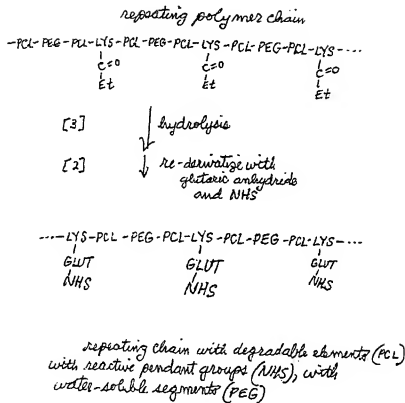 repeating polymer chain
-PCL-PEG-PCL-LYS-PCL-PEG-PCL-LYS-PCL-PEG-PCL-LYS-····
C=O C=O C=O
Et Et Et
[3] hydrolysis
[2] re-derivatize with
glutaric anhydride
and NHS
···-LYS-PCL-PEG-PCL-LYS-PCL-PEG-PCL-LYS-····
GLUT GLUT GLUT
NHS NHS NHS
repeating chain with degradable elements (PCL)
with reactive pendant groups (NHS), with
water-soluble segments (PEG)